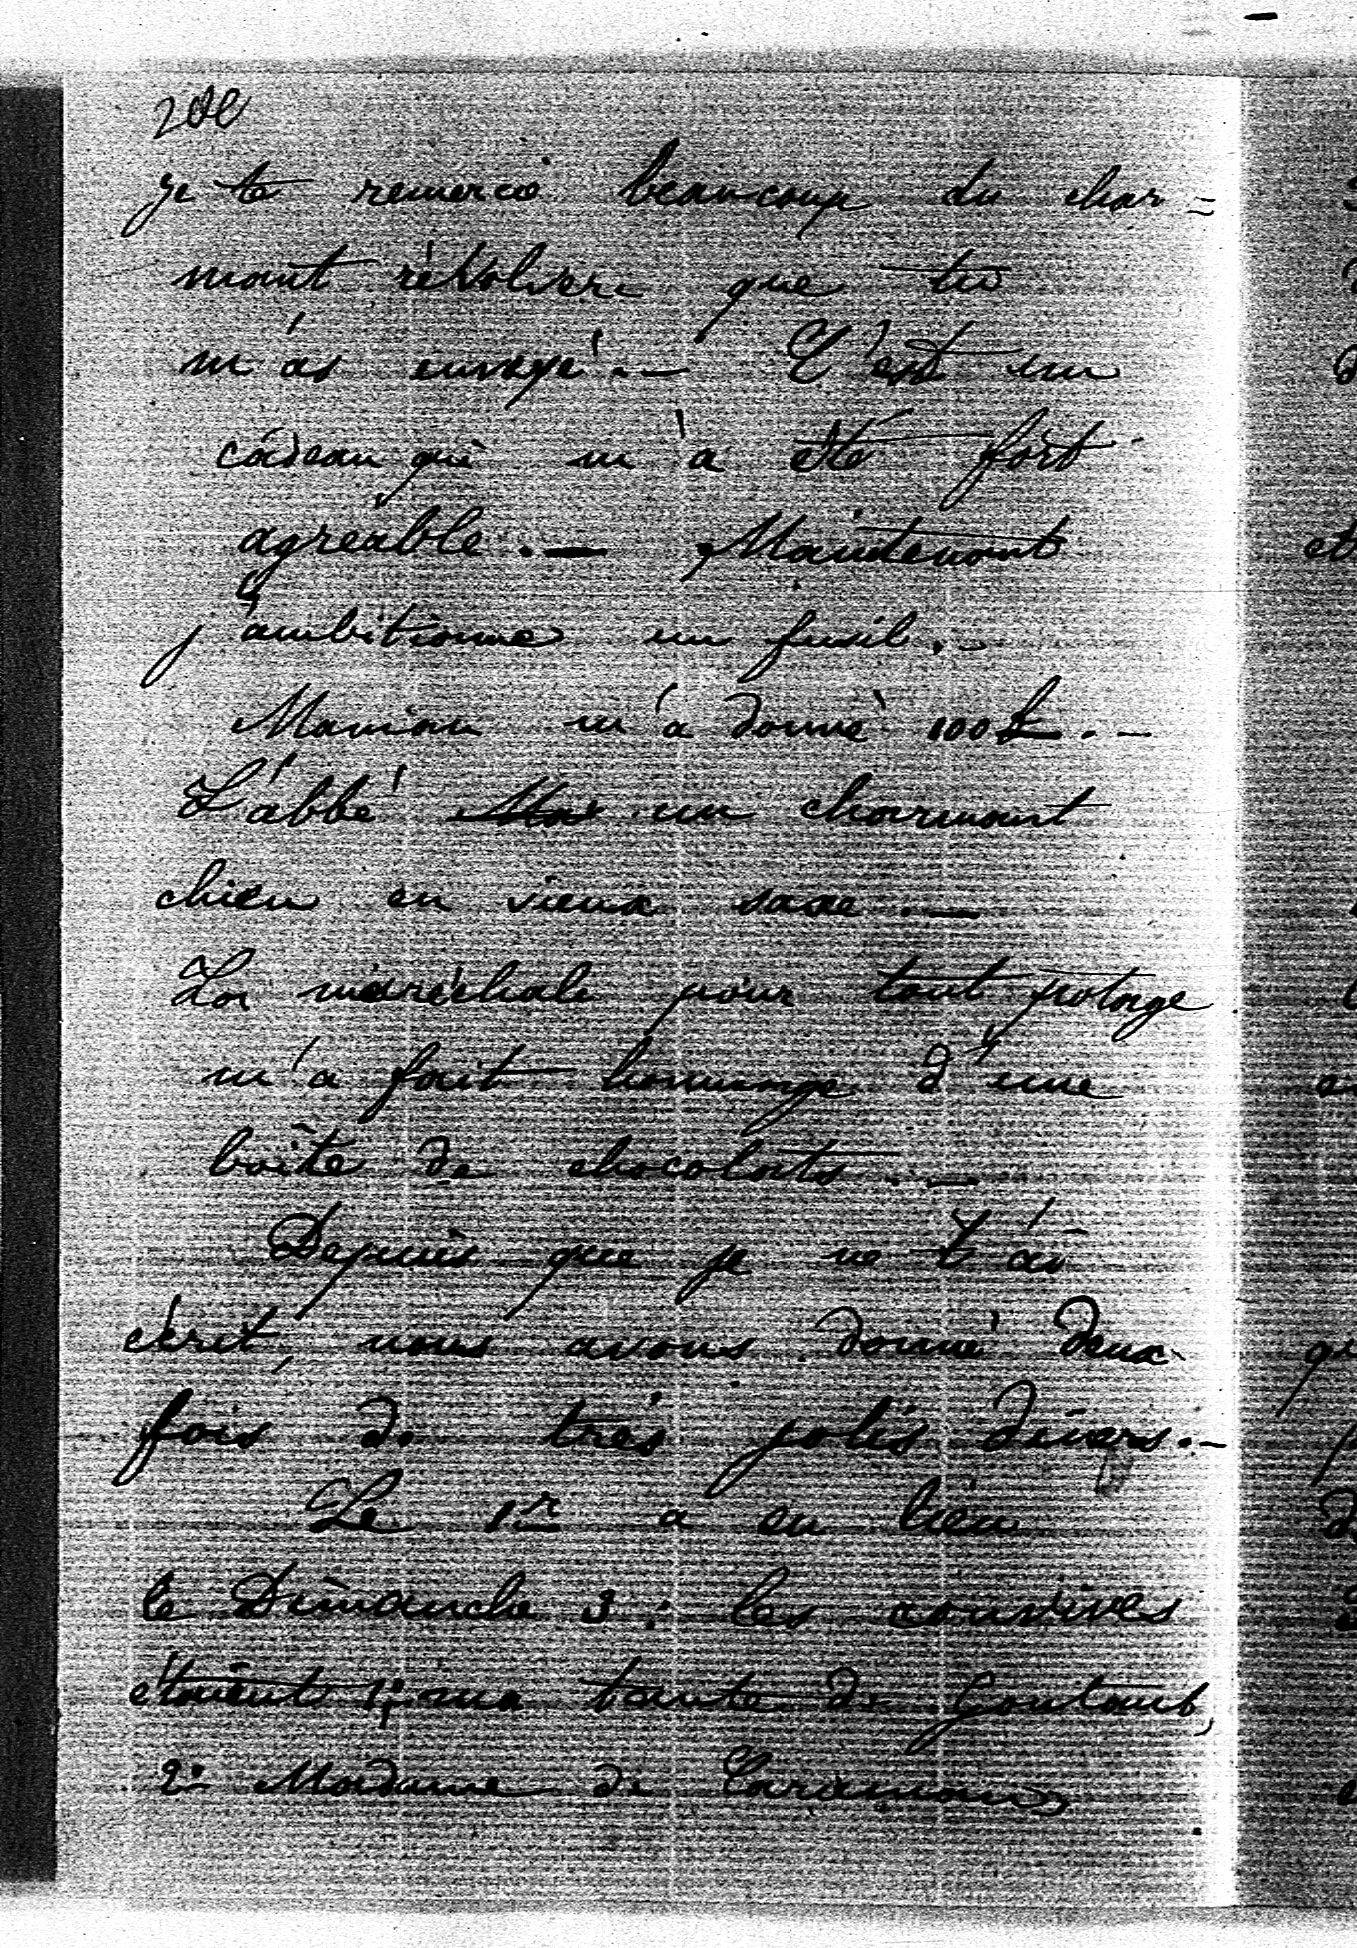 Je te remercie beaucoup du char=
mant révolver que tu
m'as envoyé. — C'est un
cadeau qui m'a été fort
agréable. — Maintenant
j'ambitionne un fusil. —
Maman m'a donné 100 f. —
L'abbé un charmant
chien en vieux saxe. —
La maréchale pour tout potage
m'a fait hommage d'une
boîte de chocolats. —
Depuis que je ne t'ai
écrit, nous avons donné deux
fois de très jolis diners. —
Le 1er a eu lieu
le Dimanche 3 : les convives
étaient 1; ma tante de Gontaut,
2. Madame de Caraman,
et